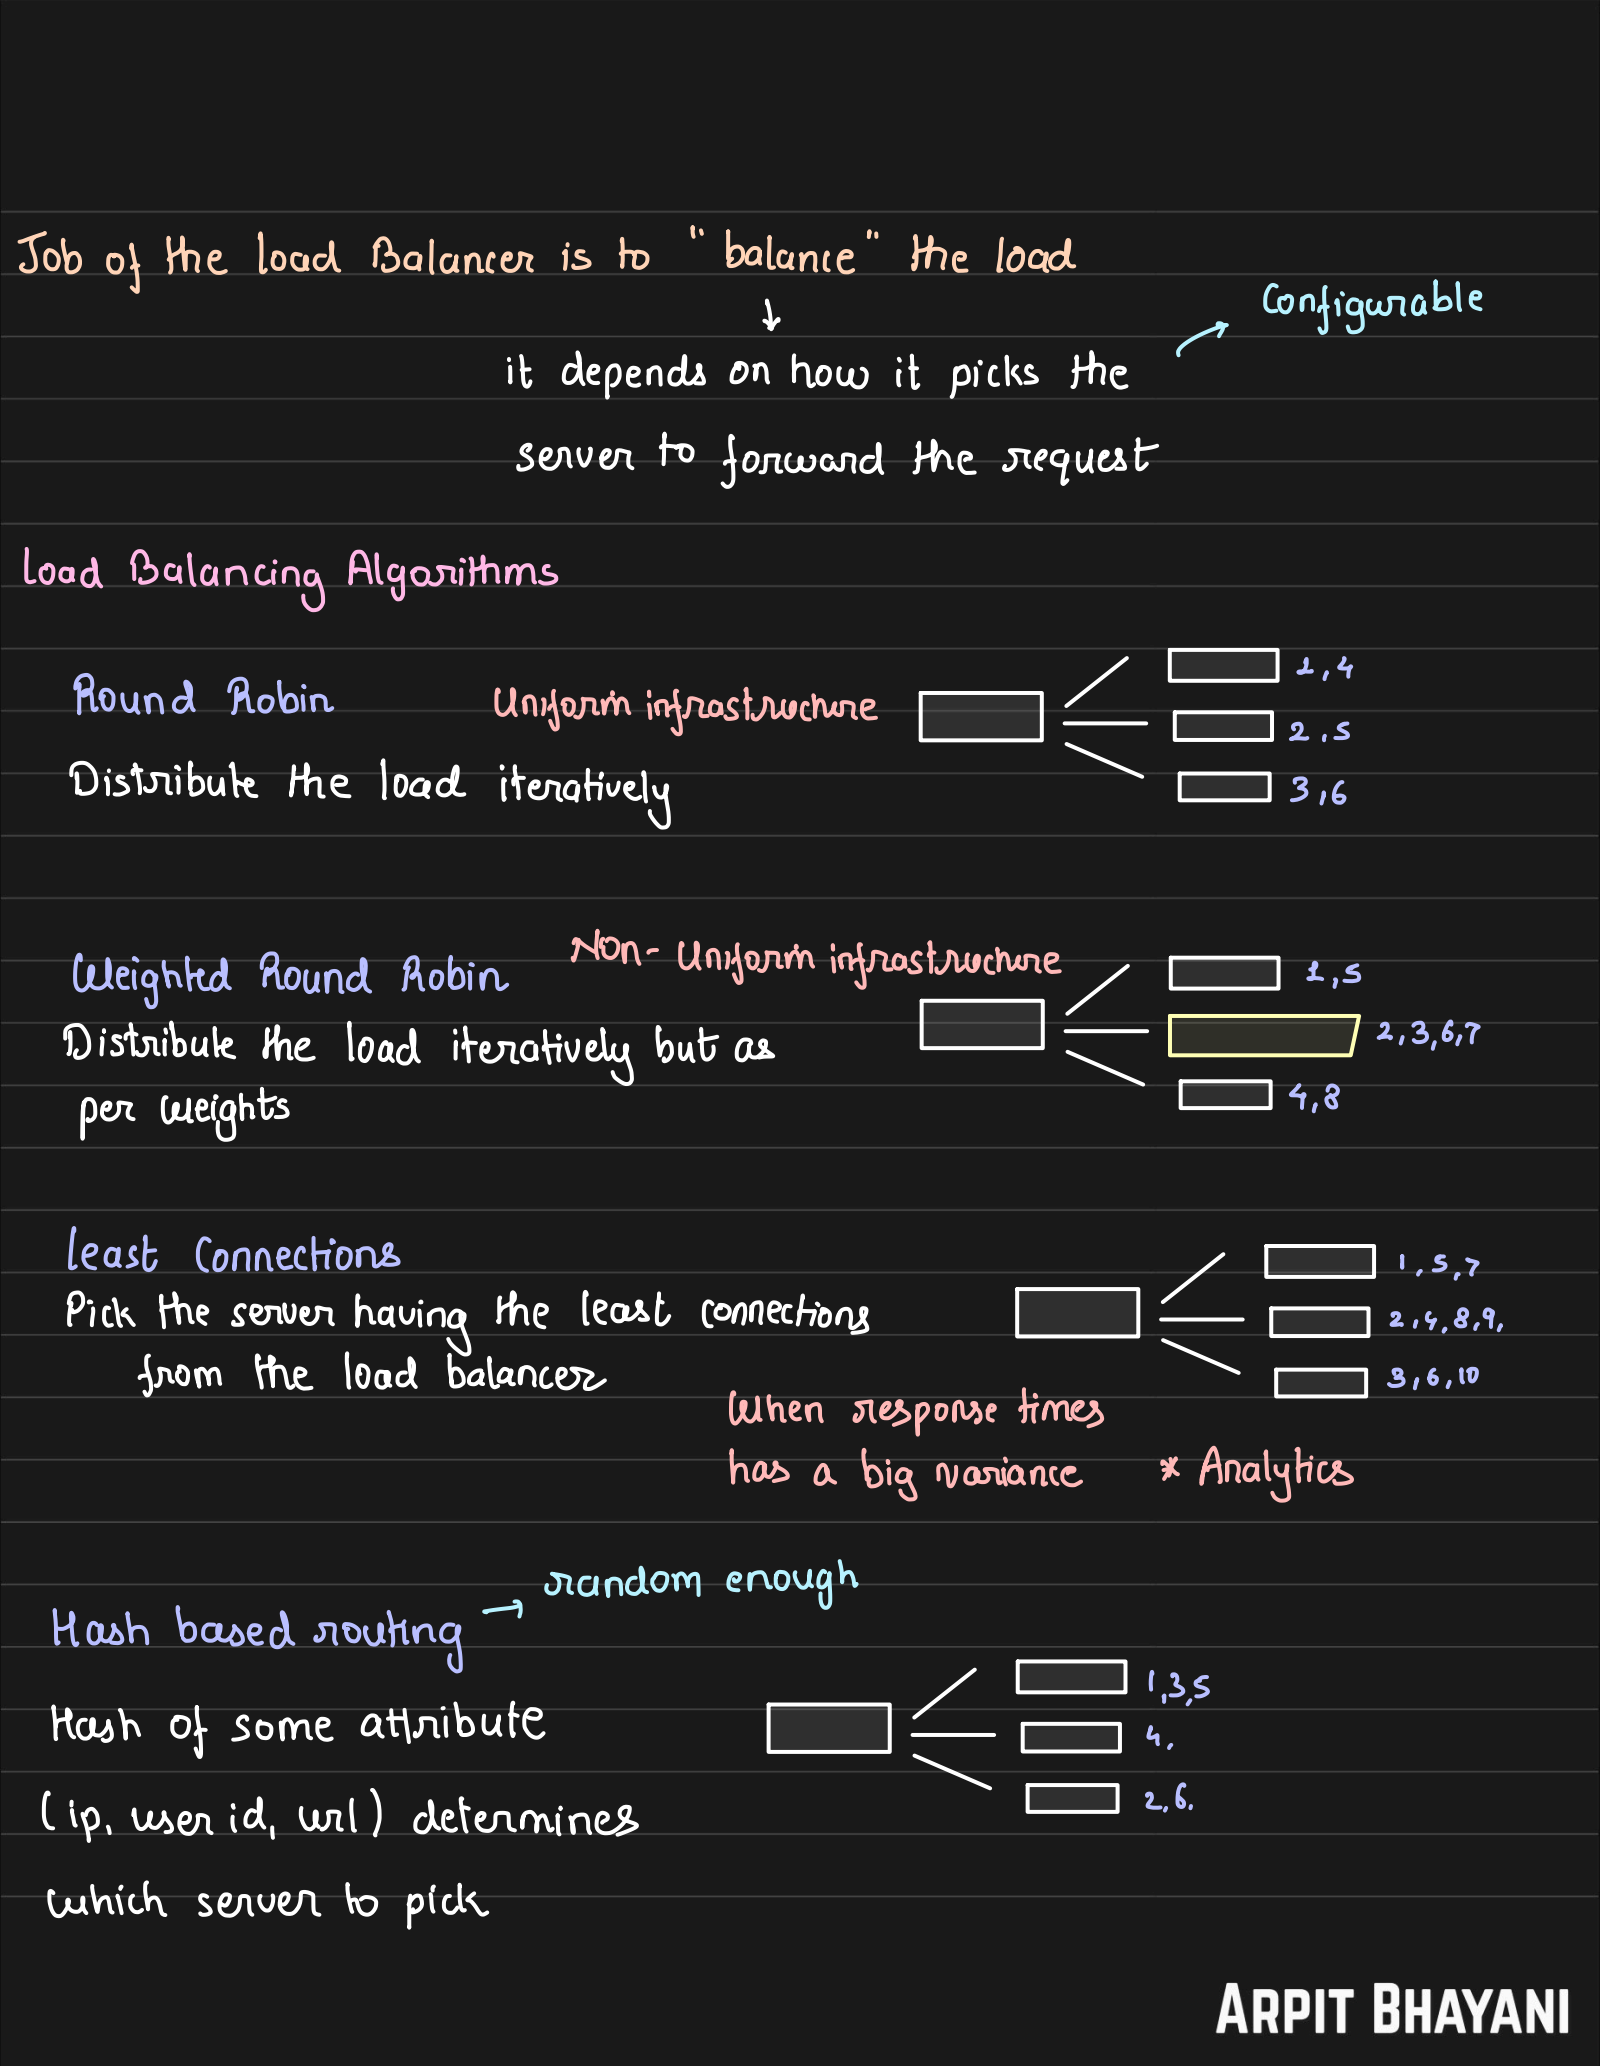 Job of the load Balancer is to "balance" the load
↓
Configurable
it depends on how it picks the
server to forward the request
Load Balancing Algorithms
Round Robin
Uniform infrastructure
Distribute the load iteratively
1,4
2,5
3,6
Weighted Round Robin
Non-Uniform infrastructure
Distribute the load iteratively but as
per weights
1,5
2,3,6,7
4,8
Least Connections
Pick the server having the least connections
from the load balancer
1,5,7
2,4,8,9,
3,6,10
When response times
has a big variance * Analytics
Hash based routing → random enough
Hash of some attribute
(ip, user id, url) determines
which server to pick
1,3,5
4,
2,6.
ARPIT BHAYANI